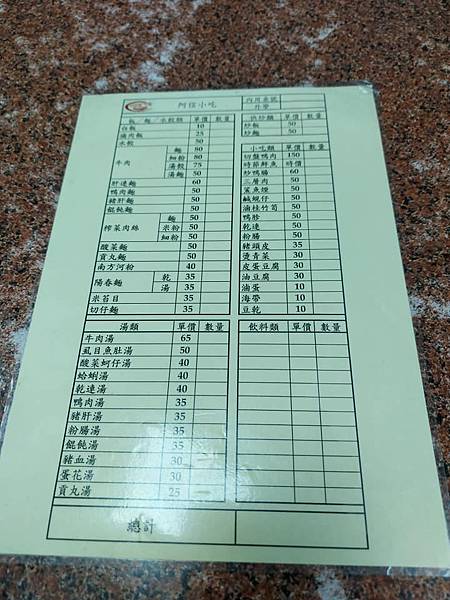 阿信小吃
內用桌號
外帶
飯／麵／水餃類 單價 數量
白飯 10
滷肉飯 25
水餃 50
牛肉 麵 80
細粉 80
湯餃 75
湯麵 50
肝連麵 60
鴨肉麵 50
豬肝麵 50
餛飩麵 50
榨菜肉絲 麵 50
米粉 50
細粉 50
酸菜麵 50
貢丸麵 50
南方河粉 40
陽春麵 乾 35
湯 35
米苔目 35
切仔麵 35
快炒類 單價 數量
炒飯 50
炒麵 50
小吃類 單價 數量
切盤鴨肉 150
時節鮮魚 時價
炒鴨腸 60
三層肉 50
鯊魚煙 50
鹹蜆仔 50
滷桂竹筍 50
鴨胗 50
乾連 50
粉腸 50
豬頭皮 35
燙青菜 30
皮蛋豆腐 30
油豆腐 30
滷蛋 10
海帶 10
豆乾 10
湯類 單價 數量
牛肉湯 65
虱目魚肚湯 50
酸菜蚵仔湯 40
蛤蜊湯 40
乾連湯 40
鴨肉湯 35
豬肝湯 35
粉腸湯 35
餛飩湯 35
豬血湯 30
蛋花湯 30
貢丸湯 25
飲料類 單價 數量
總計